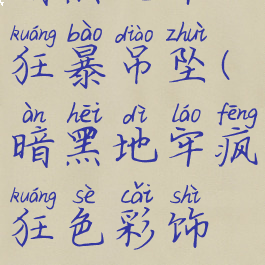 kuáng bào diào zhuì
狂暴吊坠(
àn hēi dì láo fēng
暗黑地牢疯
kuáng sè cǎi shì
狂色彩饰